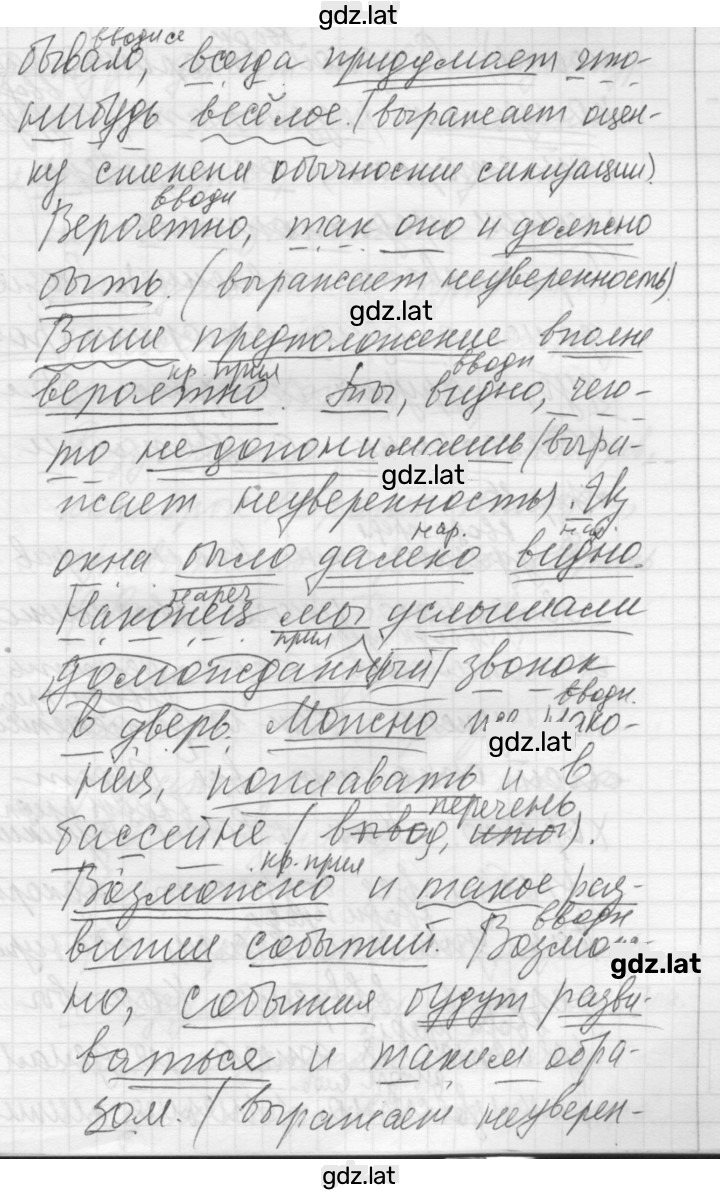 gdz.lat
вводное
бывало, всегда придумает что-
нибудь весёлое. (выражает оцен-
ку степени обычности ситуации).
вводн
Вероятно, так оно и должно
быть. (выражает неуверенность).
gdz.lat
Ваше предположение вполне
кр. прил вводн
вероятно. Ты, видно, чего-
то недопонимаешь (выра-
gdz.lat
жает неуверенность). Из
нар. нар.
окна было далеко видно.
нареч
Наконец мы услышали
прил
долгожданный звонок
вводн.
в дверь. Можно нако-
gdz.lat
нец, поплавать и в
перечень
бассейне (вывод, ).
кр. прил
Возможно и такое раз-
вводн
витии событий. Возмо
gdz.lat
но, события будут разви-
ваться и таким обра-
зом. (выражает неуверен-
gdz.lat